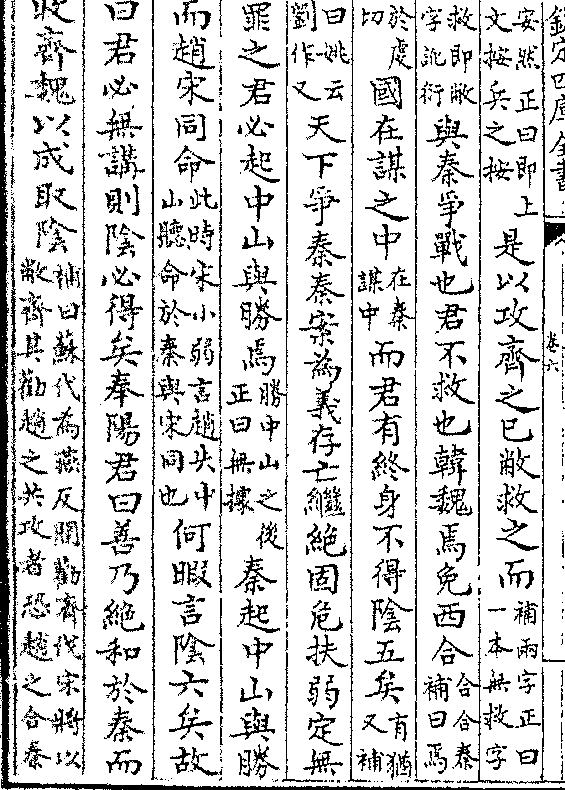 欽定四庫全書 卷六
安然正曰即上文按兵之按是以攻齊之已敝救之而補兩字正曰一本無救字
救即敝字訛衍與秦爭戰也君不救也韓魏焉免西合合合秦補曰焉
於虔切國在謀之中在秦謀中而君有終身不得陰五矣有猶又補
曰姚云劉作又天下爭秦秦案為義存亡繼絶固危扶弱定無
罪之君必起中山與勝焉勝中山之後正曰無據秦起中山與勝
而趙宋同命此時宋小弱言趙共中山聽命於秦與宋同也何暇言陰六矣故
曰君必無講則陰必得矣奉陽君曰善乃絶和於秦而
收齊魏以成取陰補曰蘇代為燕反間勸齊伐宋將以敝齊其勸趙之共攻者恐趙之合秦